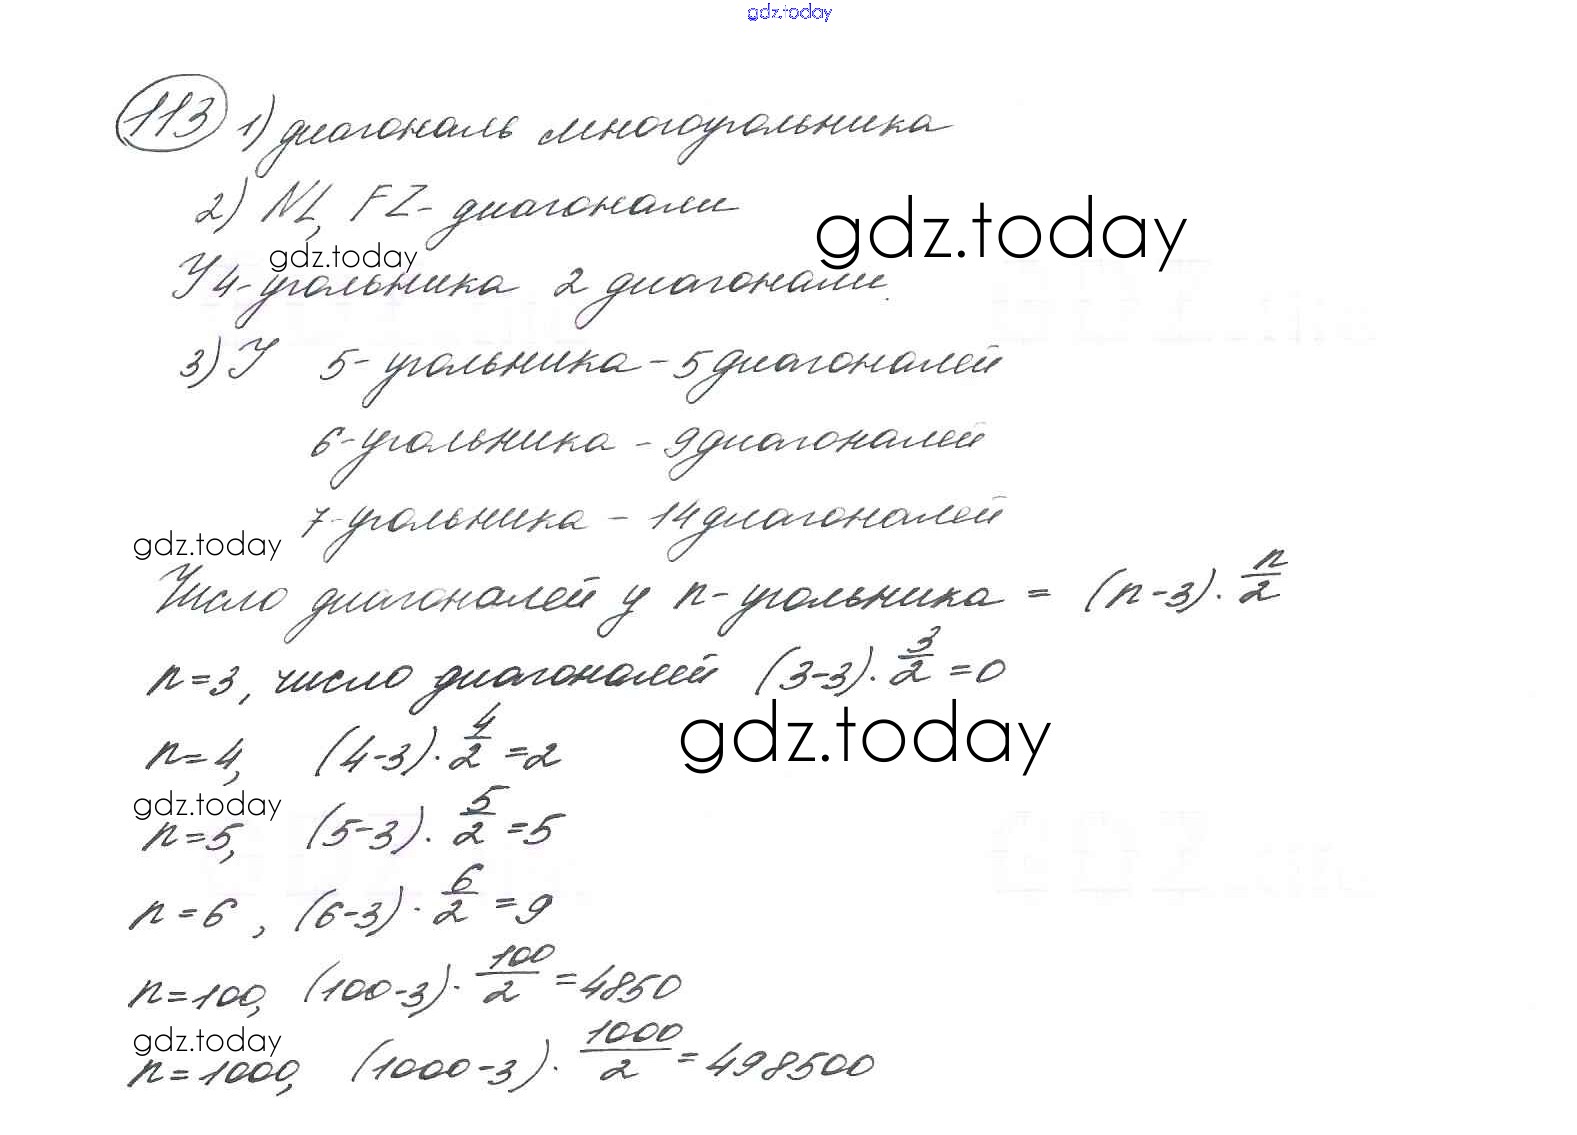 gdz.today
113 1) диагональ многоугольника
2) NL, FZ - диагонали
gdz.today
gdz.today
У 4-угольника 2 диагонали.
3) У 5-угольника - 5 диагоналей
6-угольника - 9 диагоналей
7-угольника - 14 диагоналей
gdz.today
Число диагоналей у n-угольника = (n-3)·n/2
n=3, число диагоналей (3-3)·3/2=0
gdz.today
n=4, (4-3)·4/2=2
gdz.today
n=5, (5-3)·5/2=5
n=6, (6-3)·6/2=9
n=100, (100-3)·100/2=4850
gdz.today
n=1000, (1000-3)·1000/2=498500